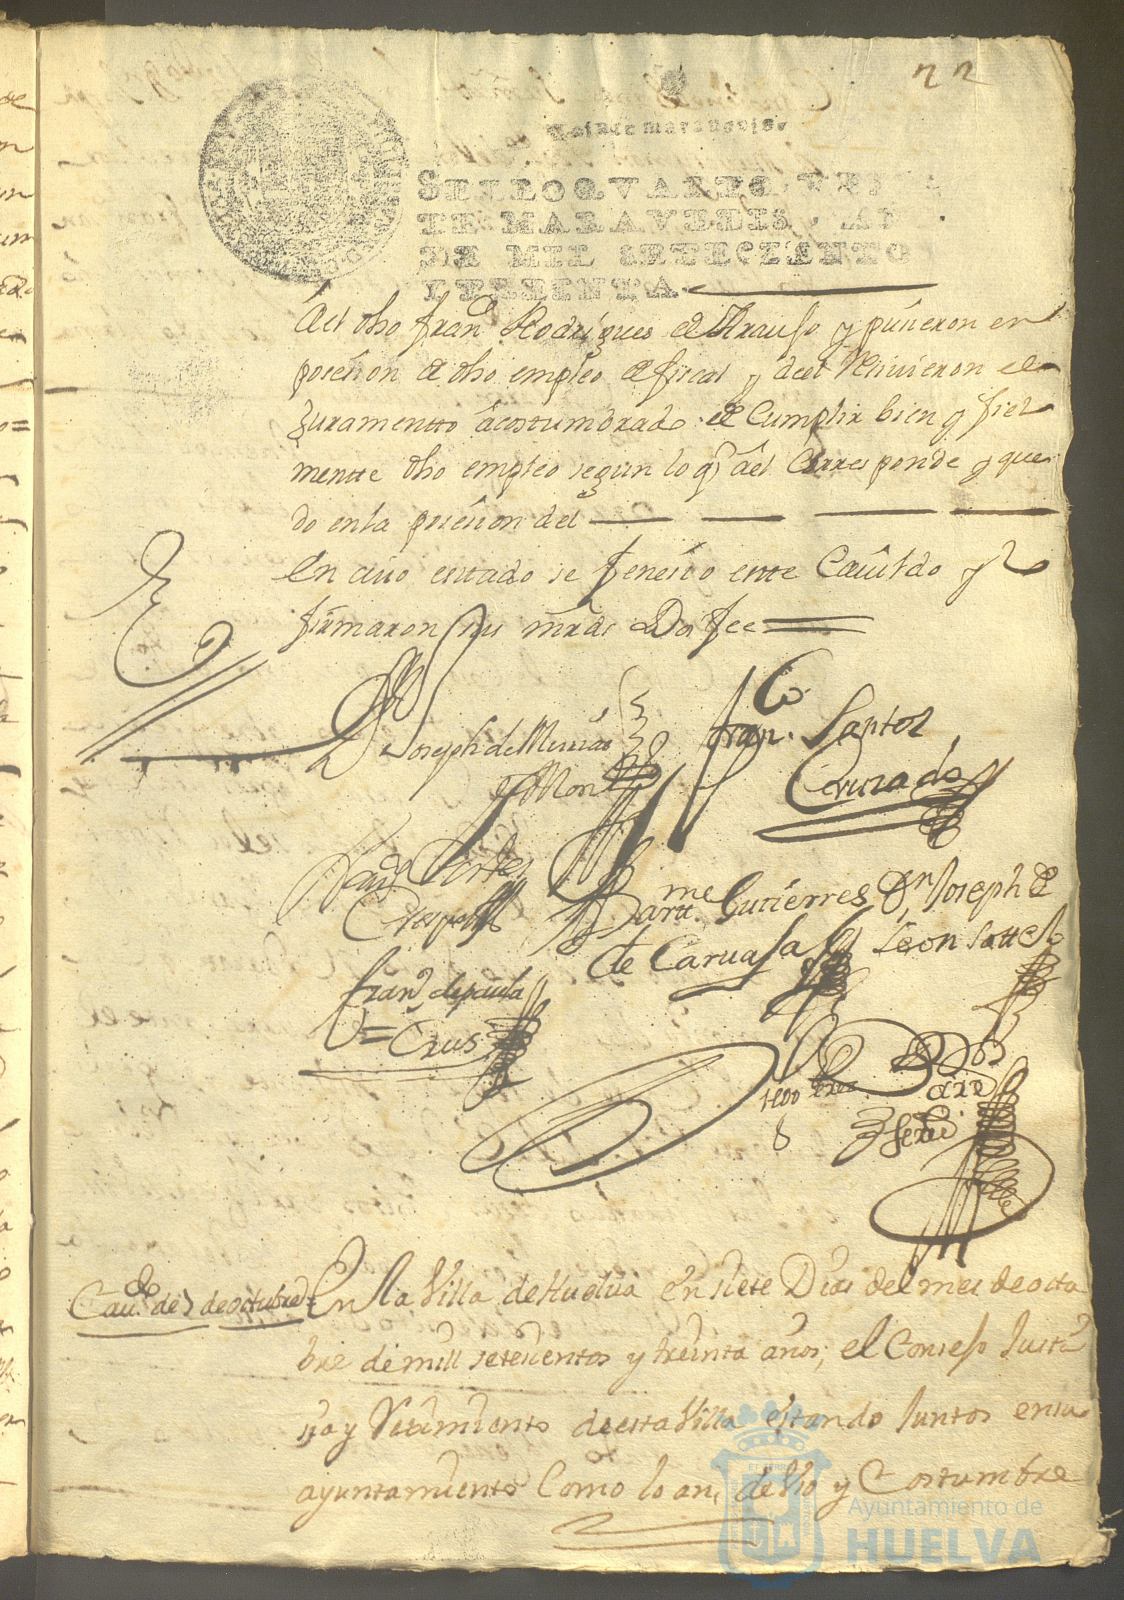 22
Veinte maravedis.
SELLO QVARTO, VEIN
TE MARAVEDIS, AÑ
DE MIL SETECIENTO
Y TREINTA.
del dho Fran.co Rodrigues de Araujo y pusieron en
posesion de dho empleo de fiscal y del reciuieron el
juramentto acostumbrado de Cumplir bien y fiel
mentte dho empleo segun lo q.e a el Corresponde y que
do en la posesion del
En cuio estado se feneçio este Cauildo y
firmaron sus mrds Doi fee
Joseph de
Fran.co Santos
Cruzado
Cortes
Crespo
Bartt.me Gutierres
de Caruajal
Dn Joseph de
Leon
Fran.co de paula
Crus
Cau.do de 7 de octubre
En la Villa de Huelua en siete Dias del mes de octu
bre de mill setecientos y treinta años, el Consejo Justi
sia y Reximiento de esta Villa estando Juntos en su
ayuntamiento Como lo an de Vso y Costumbre
Ayuntamiento de
HUELVA